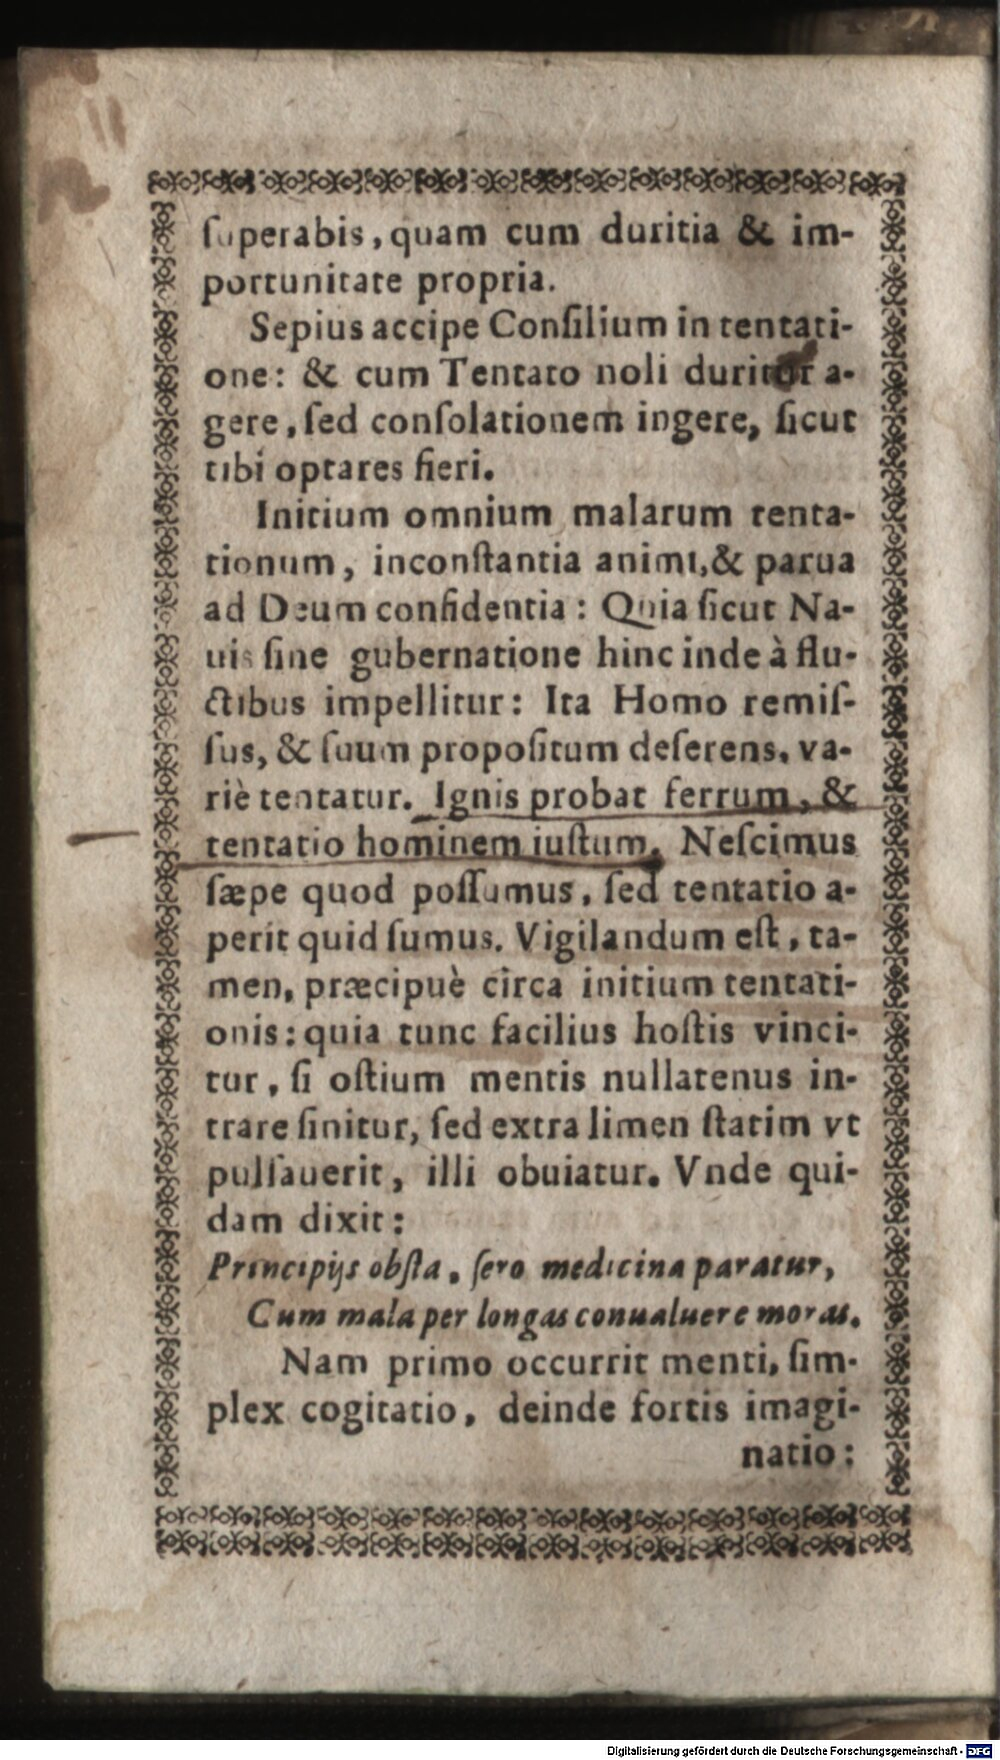 ſuperabis, quam cum duritia & im-
portunitate propria.
Sepius accipe Conſilium in tentati-
one: & cum Tentato noli duriter a-
gere, ſed conſolationem ingere, ſicut
tibi optares fieri.
Initium omnium malarum tenta-
tionum, inconſtantia animi, & parua
ad Deum confidentia: Quia ſicut Na-
uis ſine gubernatione hinc inde à flu-
ctibus impellitur: Ita Homo remiſ-
ſus, & ſuum propoſitum deſerens, va-
riè tentatur. Ignis probat ferrum, &
tentatio hominem iuſtum. Neſcimus
ſæpe quod poſſumus, ſed tentatio a-
perit quid ſumus. Vigilandum eſt, ta-
men, præcipuè circa initium tentati-
onis: quia tunc facilius hoſtis vinci-
tur, ſi oſtium mentis nullatenus in-
trare ſinitur, ſed extra limen ſtatim vt
pulſauerit, illi obuiatur. Vnde qui-
dam dixit:
Principijs obſta, ſero medicina paratur,
Cum mala per longas conualuere moras.
Nam primo occurrit menti, ſim-
plex cogitatio, deinde fortis imagi-
natio:
Digitalisierung gefördert durch die Deutsche Forschungsgemeinschaft - DFG